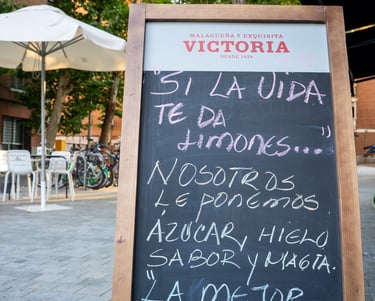 MALAGUEÑA Y EXQUISITA
VICTORIA
DESDE 1928
"SI LA VIDA
TE DA
LIMONES..."
NOSOTROS
LE PONEMOS
AZÚCAR, HIELO
SABOR Y MAGIA.
"LA MEJOR